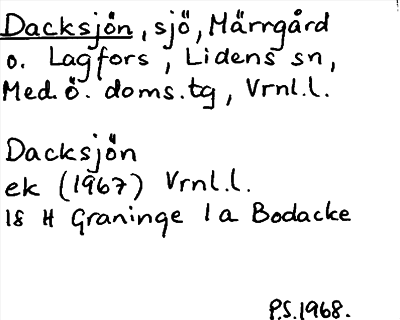 Dacksjön, sjö, Märrgård
o. Lagfors, Lidens sn,
Med.ö. doms.tg, Vrnl.l.
Dacksjön
ek (1967) Vrnl.l.
18 H Graninge 1a Bodacke
P.S.1968.